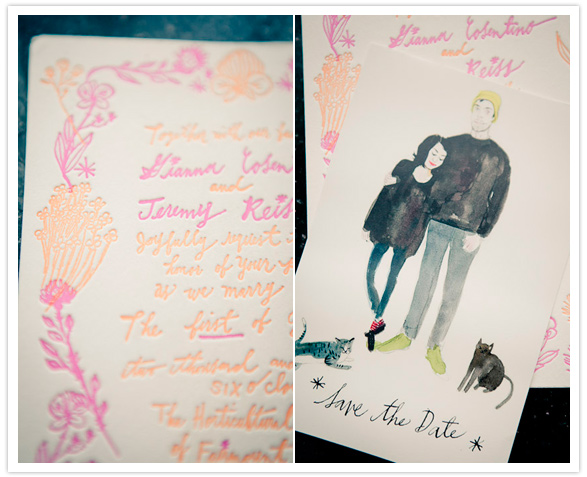 Together with our
Gianna Cosen
and
Jeremy Reis
Joyfully request
honor of your
as we marry
The first of
two thousand and
six o'clo
The Horticultural
of Fairmount
Gianna Cosentino
and
Reiss
Save the Date